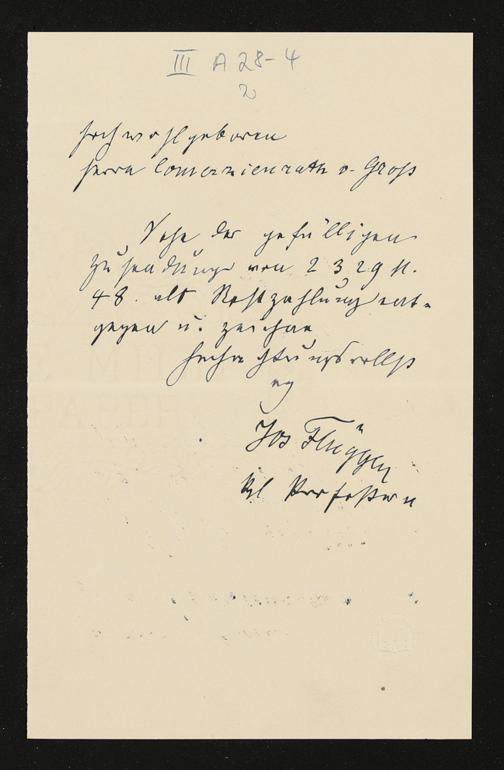 III A 28-4
2
Hochwohlgeboren
Herrn Comerzienrath v. Groß
Sehe der gefälligen
Zusendung von 2329 M.
48. als Restzahlung ent-
gegen u. zeichne
hochachtungsvollst
Jos Flüggen
Kgl Professor